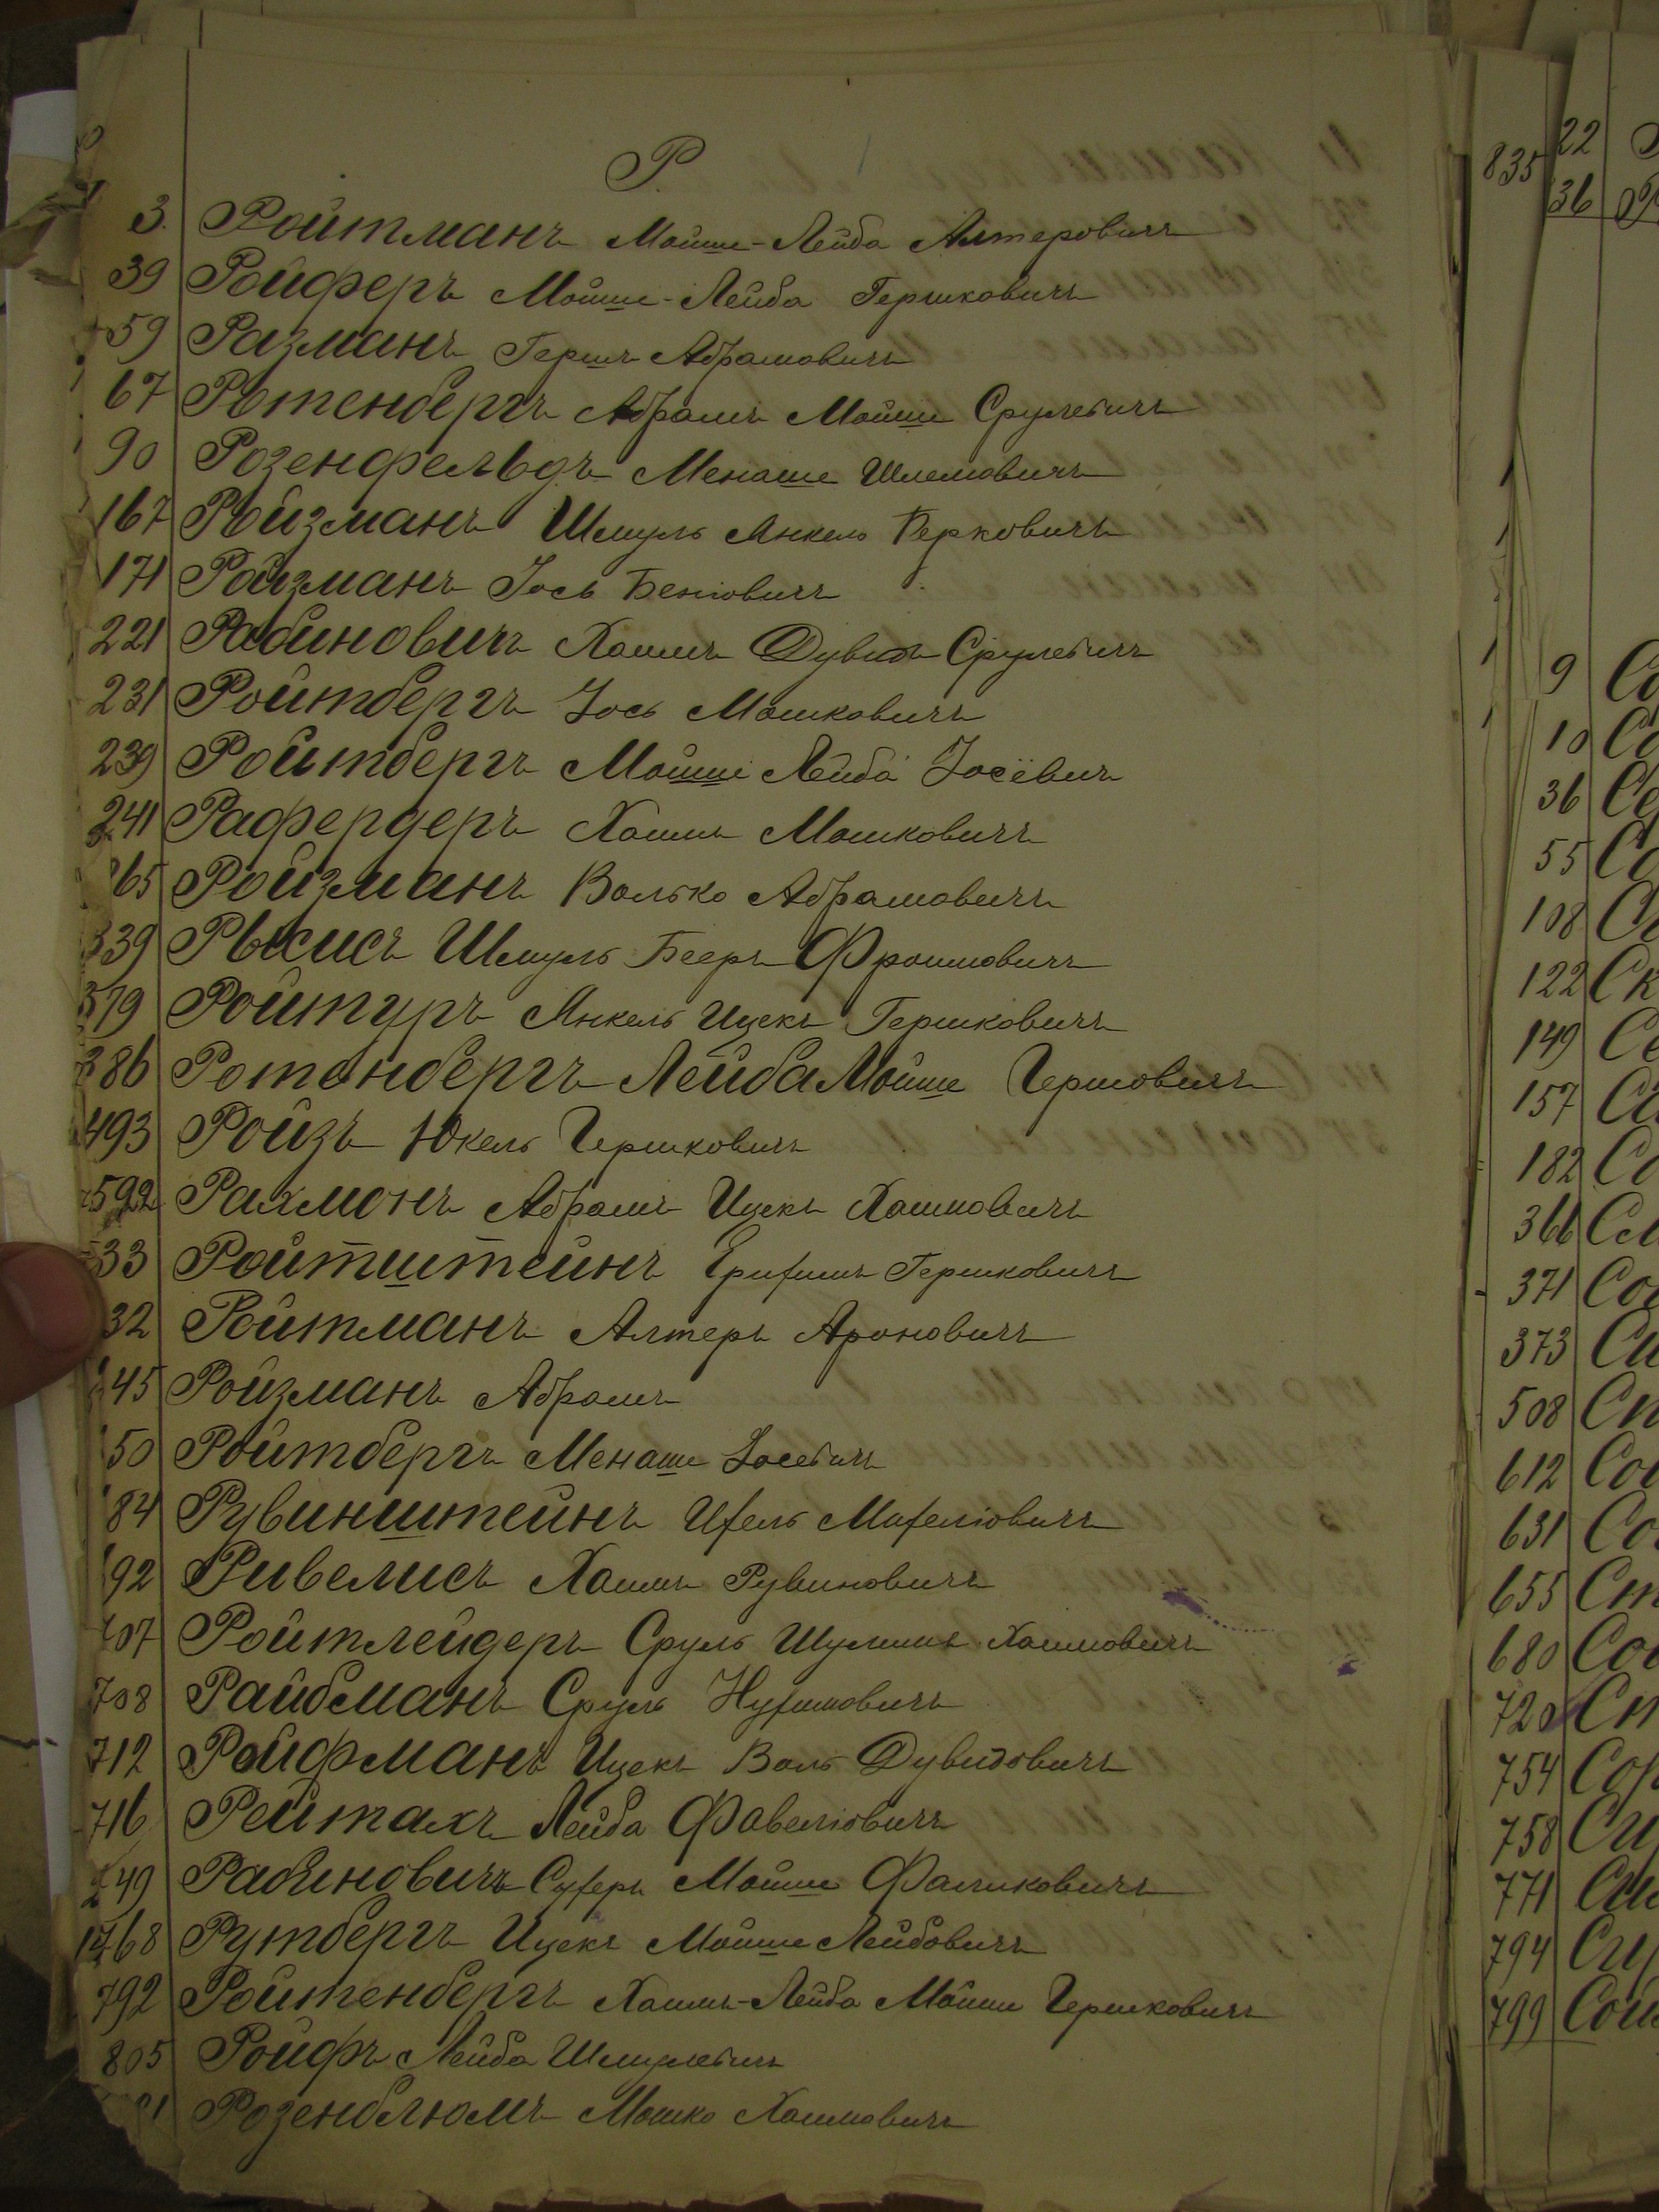 Р.
3. Ройтманъ Мойше-Лейба Алтеровичъ
39 Ройферъ Мойше-Лейба Гершковичъ
59 Разманъ Гершъ Абрамовичъ
67 Ротенбергъ Абрамъ Мойше Срулевичъ
90 Розенфельдъ Менаше Шлемовичъ
167 Ройзманъ Шмуль Янкель Берковичъ
171 Ройзманъ Іось Беніовичъ
221 Рабиновичъ Хаимъ Дувидъ Срулевичъ
231 Ройтбергъ Іось Мошковичъ
239 Ройтбергъ Мойше Лейба Іосевичъ
241 Рафердеръ Хаимъ Мошковичъ
65 Ройзманъ Волько Абрамовичъ
339 Шмуль Бееръ Фроимовичъ
379 Ройтуръ Янкель Ицекъ Гершковичъ
386 Ротенбергъ Лейба Мойше Гершовичъ
493 Ройзъ Юкель Гершковичъ
592 Рахмонъ Абрамъ Ицекъ Хаимовичъ
33 Ройтштейнъ Гершковичъ
32 Ройтманъ Алтеръ Ароновичъ
45 Ройзманъ Абрамъ
50 Ройтбергъ Менаше Іосевичъ
84 Рувинштейнъ
92 Ривелисъ Хаимъ Рувиновичъ
707 Ройтлейдеръ Сруль Шулимъ Хаимовичъ
708 Райбманъ Сруль
712 Ройфманъ Ицекъ Воль Дувидовичъ
716 Рейтахъ Лейба Фавеліовичъ
749 Рабиновичъ Мойше Фаликовичъ
768 Рутбергъ Ицекъ Мойше Лейбовичъ
792 Ройтенбергъ Хаимъ-Лейба Мойше Гершковичъ
805 Ройфъ Лейба Шмулевичъ
Розенблюмъ Мошко Хаимовичъ
835
22
36
9
10
36
55
108
122 Ск
149
157
182
366
371
373
508
612
631
655
680
720
754
758
771
794
799